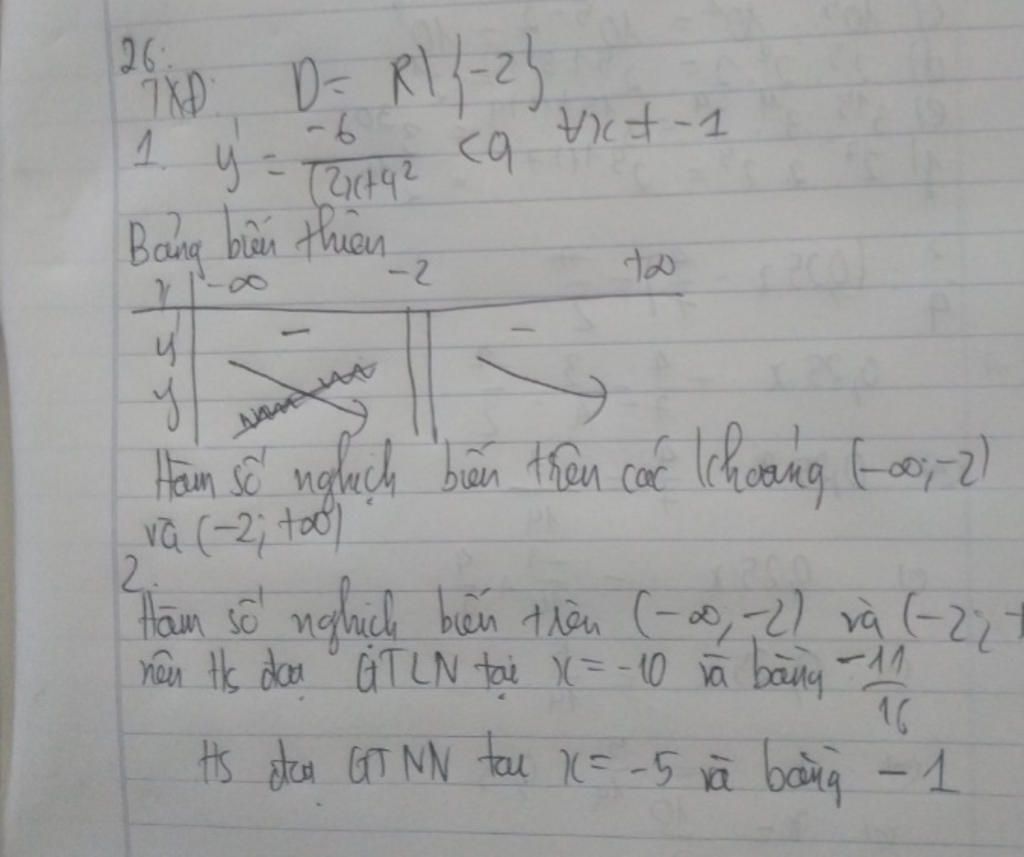 26.
TXĐ: D = R\{-2}
1. y' = -6/(2x+4)² < 0 ∀x ≠ -1
Bảng biến thiên
x -∞ -2 +∞
y' - -
y
Hàm số nghịch biến trên các khoảng (-∞;-2)
và (-2; +∞)
2.
Hàm số nghịch biến trên (-∞;-2) và (-2; +
nên Hs đạt GTLN tại x = -10 và bằng -11/16
Hs đạt GTNN tại x = -5 và bằng -1